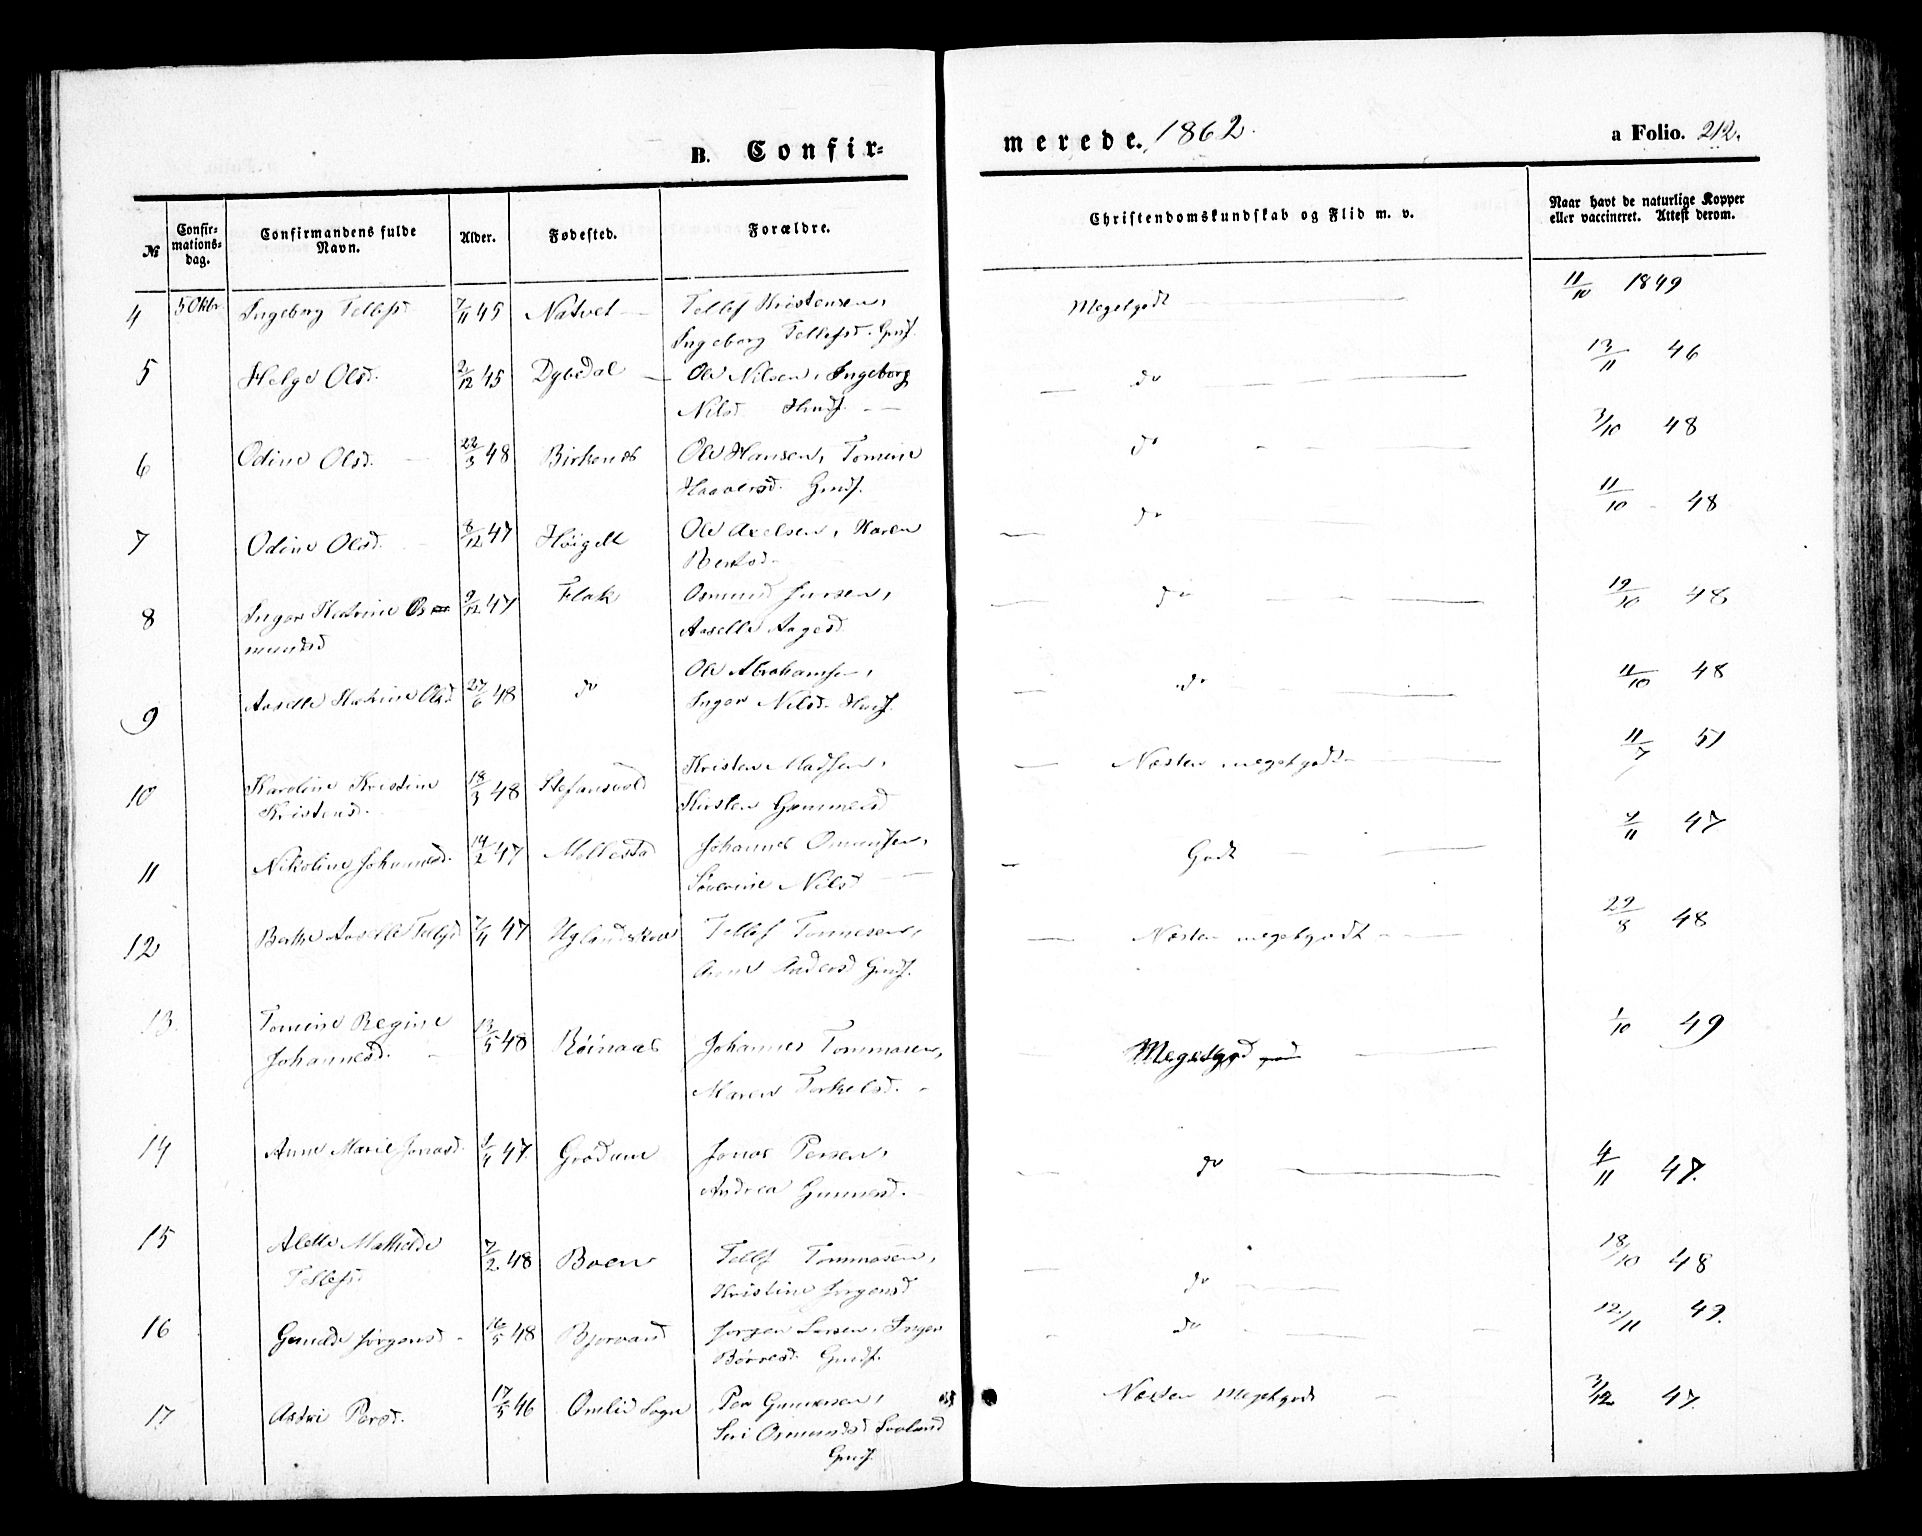 B. Confir-
merede. 1862.
a Folio. 212.
№ Confir-mations-dag. Confirmandens fulde Navn. Alder. Fødested. Forældre. Christendomskundskab og Flid m. v. Naar havt de naturlige Kopper eller vaccineret. Attest derom.
4 5 Oktbr Ingeborg Tellefsd 7/11 45 Natvet Tellef Kristensen, Megetgodt 11/10 1849
Ingeborg Tellefsd. Gmf.
5 Helge Olsd. 2/12 45 Dybedal Ole Nilsen, Ingeborg do 13/11 46
Nilsd Husf.
6 Odine Olsd. 22/3 48 Birkenes Ole Hansen, Tomine do 3/10 48
Haaversd. Gmf.
7 Odine Olsd. 8/12 47 Ole Axelsen, Karen do 11/10 48
Berntsd.
8 Inger Katrine Os- 9/12 47 Flak Osmund Jensen, do 19/10 48
mundsd Aaselle Aagesd.
9 Aaselle Katrine Olsd 27/6 48 do Ole Abrahamsen, do 11/10 48
Inger Nilsd. Husf.
10 Karoline Kristine 18/3 48 Stefansvold Kristen Madsen, Næsten megetgodt 11/7 51
Kristensd. Kirsten Gunnersd
11 Nikoline Johannesd. 14/2 47 Mollestad Johannes Omunsen, Godt 9/11 47
Severine Nilsd
12 Berthe Aaselle Tellefsd 7/4 47 Tellef Tommesen, Næsten megetgodt 22/8 48
Anne Andersd Gmf.
13 Tomine Regine 13/5 48 Røinaas Johannes Tommasen, Megetgod 1/10 49
Johannesd. Maren Terkelsd.
14 Anne Marie Jonasd. 47 Grødum Jonas Persen, do 4/11 47.
Andrea Gunnersd.
15 Alette Mathilde 7/2 48 Boen Tellef Tommasen, do 18/10 48
Tellefsd Kristine Jørgensd
16 Gunilde Jørgensd 16/5 48 Bjorvand Jørgen Larsen, Inger do 12/11 49.
Børresd. Gmf.
17. Astri Persd. 17/5 46 Omlid Sogn Per Gunnersen, Næsten Megetgodt 3/12 47.
Siri Osmundsd
Gmf.